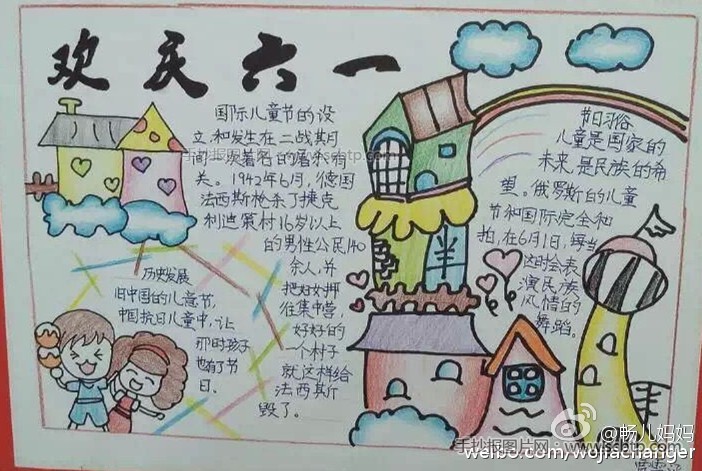 欢庆六一
国际儿童节的设
立,和发生在二战其月
间一次著名的屠杀有
关。1942年6月,德国
法西斯枪杀了捷克
利迪策村16岁以上
的男性公民140
余人,并
把妇女押
往集中营,
好好的
一个村子
就这样给
法西斯
毁了。
节日习俗
儿童是国家的
未来,是民族的希
望。俄罗斯的儿童
节和国际完全和
拍,在6月1日,每当
这时会表
演民族
风情的
舞蹈。
历史发展
旧中国的儿童节,
中国抗日儿童中,让
那时孩子
也有了节
日。
手抄报图片网
@畅儿妈妈
weibo.com/wojiachanger